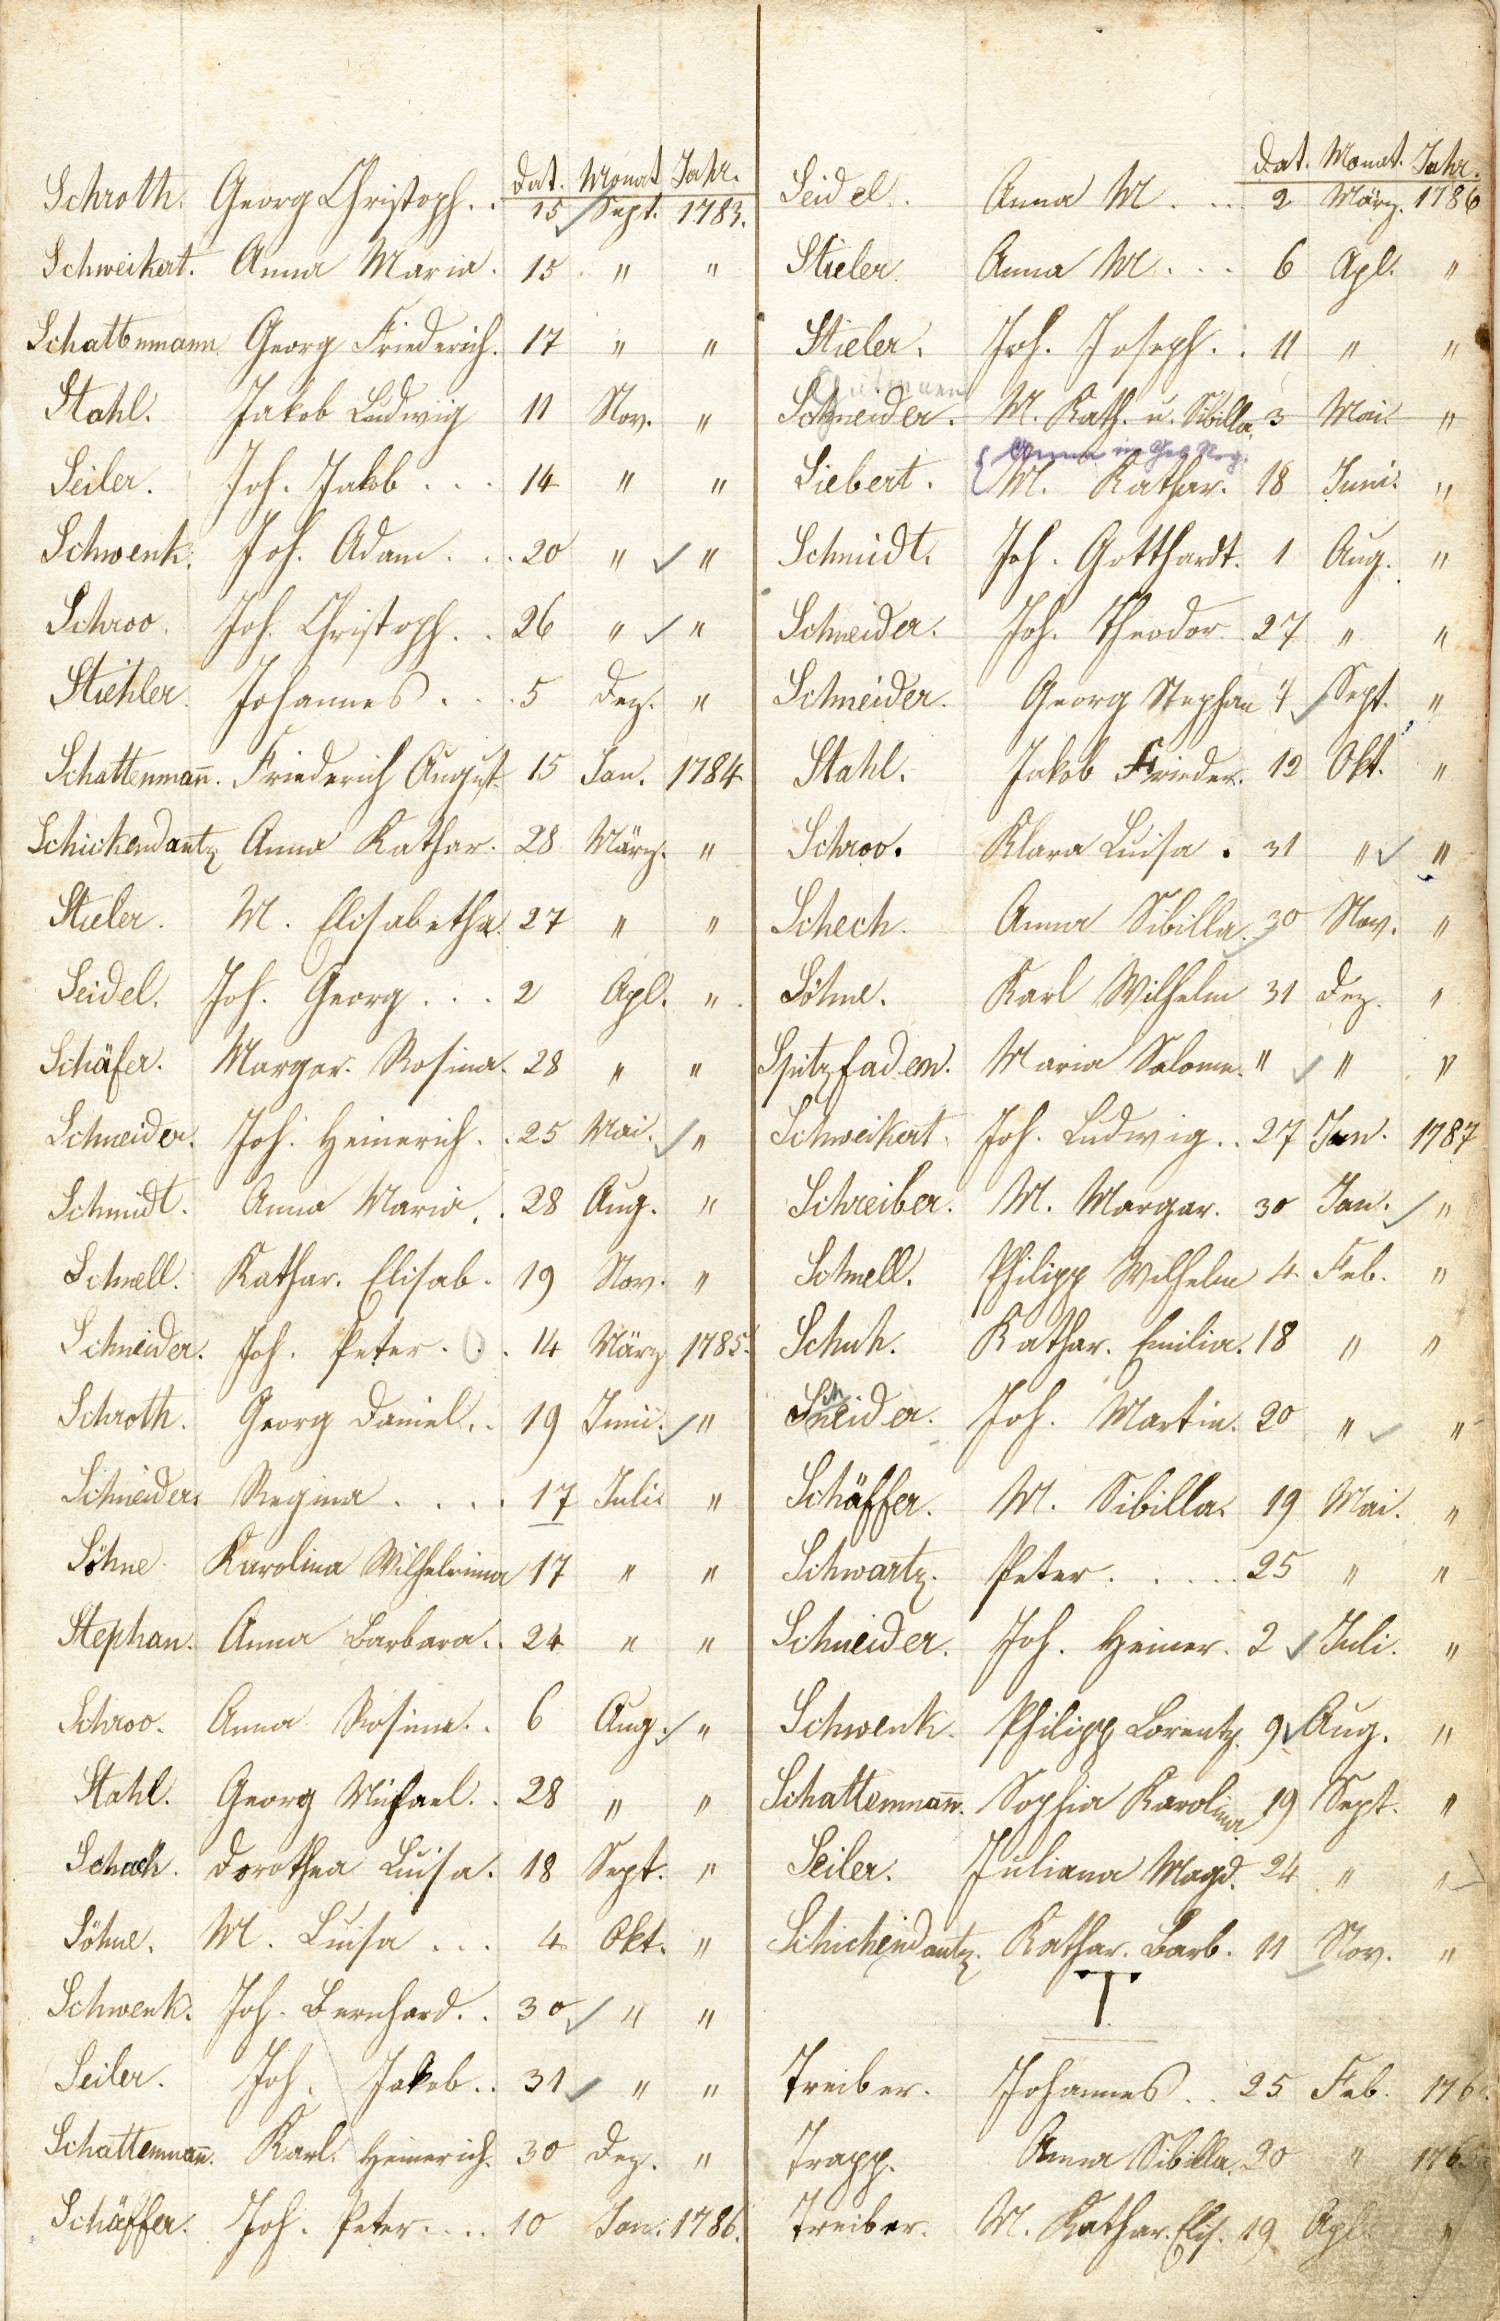 Dat. Monat Jahr.
Schroth. Georg Christoph. . 15 Sept. 1783.
Schweikert. Anna Maria. 15 " "
Schattenmann Georg Friederich. 17 " "
Stahl. Jakob Ludwig 11 Nov. "
Seiler. Joh. Jakob . . . 14 " "
Schwenk. Joh. Adam. . . 20 " "
Schroo. Joh. Christoph. . 26 " "
Stiehler. Johannes . . . 5 Dez. "
Schattenman̄. Friederich August. 15 Jan. 1784
Schickendantz Anna Kathar. 28 März. "
Stieler. M. Elisabetha. 27 " "
Seidel. Joh. Georg . . . 2 Apl. "
Schäfer. Margar. Rosina. 28 " "
Schneider. Joh. Heinerich. . 25 Mai. "
Schmidt. Anna Maria. . 28 Aug. "
Schnell. Kathar. Elisab. 19 Nov. "
Schneider. Joh. Peter. . . 14 März 1785.
Schroth. Georg Daniel. . 19 Juni. "
Schneider. Regina . . . . 17 Juli. "
Söhne Karolina Wilhelmina 17 " "
Stephan. Anna Barbara. . 24 " "
Schroo. Anna Rosina. . 6 Aug. "
Stahl. Georg Michael. . 28 " "
Schech. Dorothea Luisa. 18 Sept. "
Söhne. M. Luisa . . . 4 Okt. "
Schwenk. Joh. Bernhard. . 30 " "
Seiler. Joh. Jakob. . 31 " "
Schattenman̄. Karl. Heinerich. 30 Dez. "
Schäffer. Joh. Peter. . . . 10 Jan. 1786.
Dat. Monat. Jahr.
Seidel. Anna M. . . . 2 März. 1786
Stieler. Anna M. . . . 6 Apl. "
Stieler. Joh. Joseph. . 11 " "
Schneider. M. Kath. u. Sibilla. 3 Mai. "
Anna in Geb. Reg.
Siebert. M. Kathar. 18 Juni. "
Schmidt. Joh. Gotthardt. 1 Aug. "
Schneider. Joh. Theodor. 27 " "
Schneider. Georg Stephan 4 Sept. "
Stahl. Jakob Frieder. 12 Okt. "
Schroo. Klara Luisa . 31 " "
Schech. Anna Sibilla. 30 Nov. "
Söhne. Karl Wilhelm 31 Dez. "
Spitzfaden. Maria Salome. " " "
Schweikert. Joh. Ludwig. . 27 Jan. 1787
Schreiber. M. Margar. 30 Jan. "
Schnell. Philipp Wilhelm 4 Feb. "
Schuh. Kathar. Emilia. 18 " "
Schneider. Joh. Martin. 20 " "
Schäffer. M. Sibilla. 19 Mai. "
Schwartz. Peter. . . . . 25 " "
Schneider. Joh. Heiner. 2 Juli. "
Schwenk. Philipp Lorentz. 9 Aug. "
Schattenman̄. Sophia Karolina 19 Sept. "
Seiler. Juliana Magd. 24 " "
Schickendantz. Kathar. Barb. 11 Nov. "
T.
Treiber. Johannes . . 25 Feb.
Trapp. Anna Sibilla. 20 "
Treiber. M. Kathar. Elis. 19 Apl. "